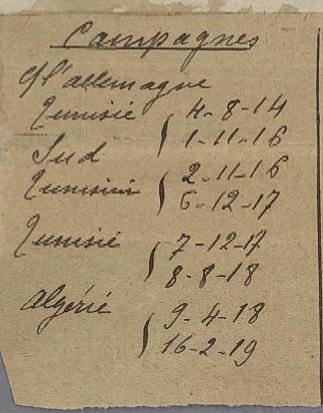 Campagnes
C/ l'allemagne
Tunisie { 4-8-14
1-11-16
Sud
Tunisien { 2-11-16
6-12-17
Tunisie { 7-12-17
8-8-18
Algérie { 9-4-18
16-2-19